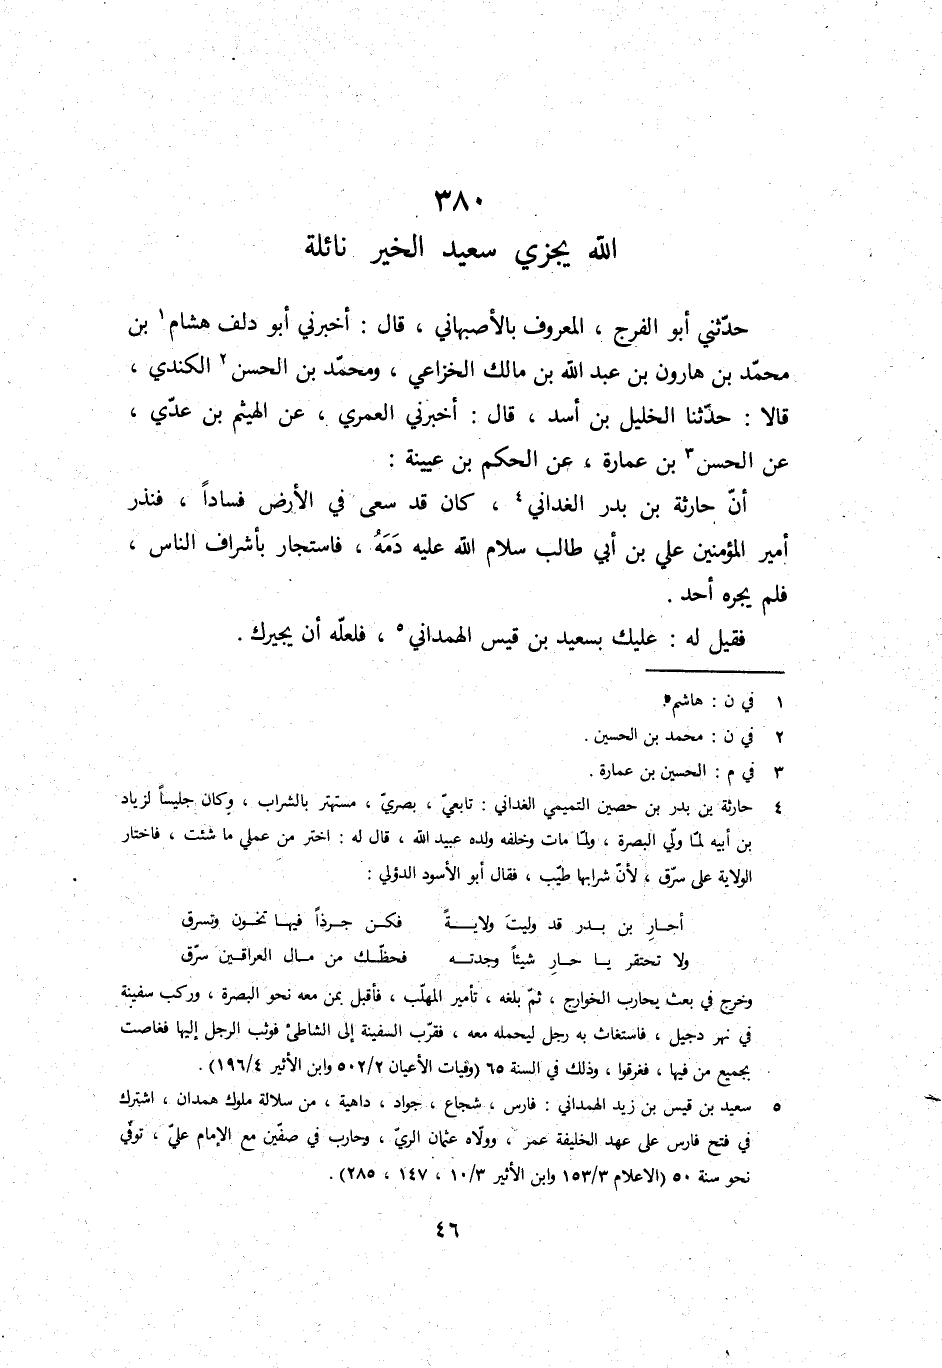 ٣٨٠
الله يجزي سعيد الخير نائلة
حدّثني أبو الفرج ، المعروف بالأصبهاني ، قال : أخبرني أبو دلف هشام١ بن
محمّد بن هارون بن عبد الله بن مالك الخزاعي ، ومحمّد بن الحسن٢ الكندي ،
قالا : حدّثنا الخليل بن أسد ، قال : أخبرني العمري ، عن الهيثم بن عدّي ،
عن الحسن٣ بن عمارة ، عن الحكم بن عيينة :
أنّ حارثة بن بدر الغداني٤ ، كان قد سعى في الأرض فساداً ، فنذر
أمير المؤمنين علي بن أبي طالب سلام الله عليه دَمَهُ ، فاستجار بأشراف الناس ،
فلم يجره أحد .
فقيل له : عليك بسعيد بن قيس الهمداني٥ ، فلعلّه أن يجيرك .
١ في ن : هاشم .
٢ في ن : محمد بن الحسين .
٣ في م : الحسين بن عمارة .
٤ حارثة بن بدر بن حصين التميمي الغداني : تابعيّ ، بصريّ ، مستهتر بالشراب ، وكان جليساً لزياد
بن أبيه لمّا ولّي البصرة ، ولمّا مات وخلفه ولده عبيد الله ، قال له : اختر من عملي ما شئت ، فاختار
الولاية على سرّق ، لأنّ شرابها طيّب ، فقال أبو الأسود الدؤلي :
أحارِ بن بدر قد وليتَ ولايةً فكن جرذاً فيها تخون وتسرق
ولا تحتقر يا حارِ شيئاً وجدته فحظّك من مال العراقين سرّق
وخرج في بعث يحارب الخوارج ، ثمّ بلغه ، تأمير المهلّب ، فأقبل بمن معه نحو البصرة ، وركب سفينة
في نهر دجيل ، فاستغاث به رجل ليحمله معه ، فقرّب السفينة إلى الشاطئ فوثب الرجل إليها فغاصت
بجميع من فيها ، فغرقوا ، وذلك في السنة ٦٥ (وفيات الأعيان ٥٠٢/٢ وابن الأثير ١٩٦/٤) .
٥ سعيد بن قيس بن زيد الهمداني : فارس ، شجاع ، جواد ، داهية ، من سلالة ملوك همدان ، اشترك
في فتح فارس على عهد الخليفة عمر ، وولّاه عثمان الريّ ، وحارب في صفّين مع الإمام عليّ ، توفّي
نحو سنة ٥٠ (الاعلام ١٥٣/٣ وابن الأثير ١٠/٣ ، ١٤٧ ، ٢٨٥) .
٤٦